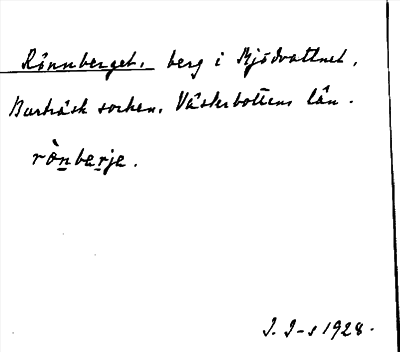 Rönnberget, berg i Mjödvattnet,
Burträsk socken, Västerbottens län.
rò̀nbærje.
J. J-s 1928.